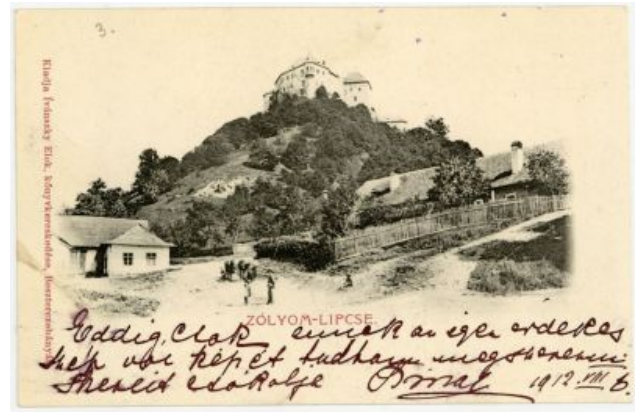 3.
Kiadja Ivánszky Elek, könyvkereskedése, Beszterczebánya
ZÓLYOM-LIPCSE.
Eddig csak ennek az igen érdekes
szép vár képét tudtam megszerezni
Szeretett csókolje
1912. VIII. 6.